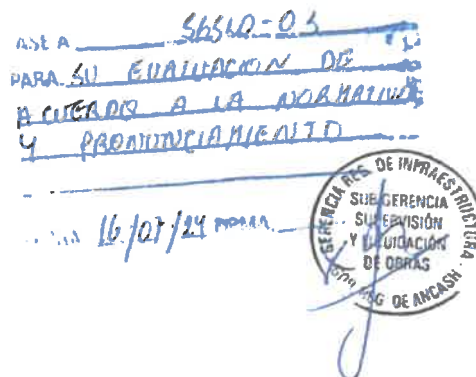 PASE A SGSLO-03
PARA SU EVALUACION DE
ACUERDO A LA NORMATIVA
Y PRONUNCIAMIENTO
16/07/24 HORA
GERENCIA REG. DE INFRAESTRUCTURA
SUB GERENCIA
SUPERVISIÓN
Y LIQUIDACIÓN
DE OBRAS
REG DE ANCASH